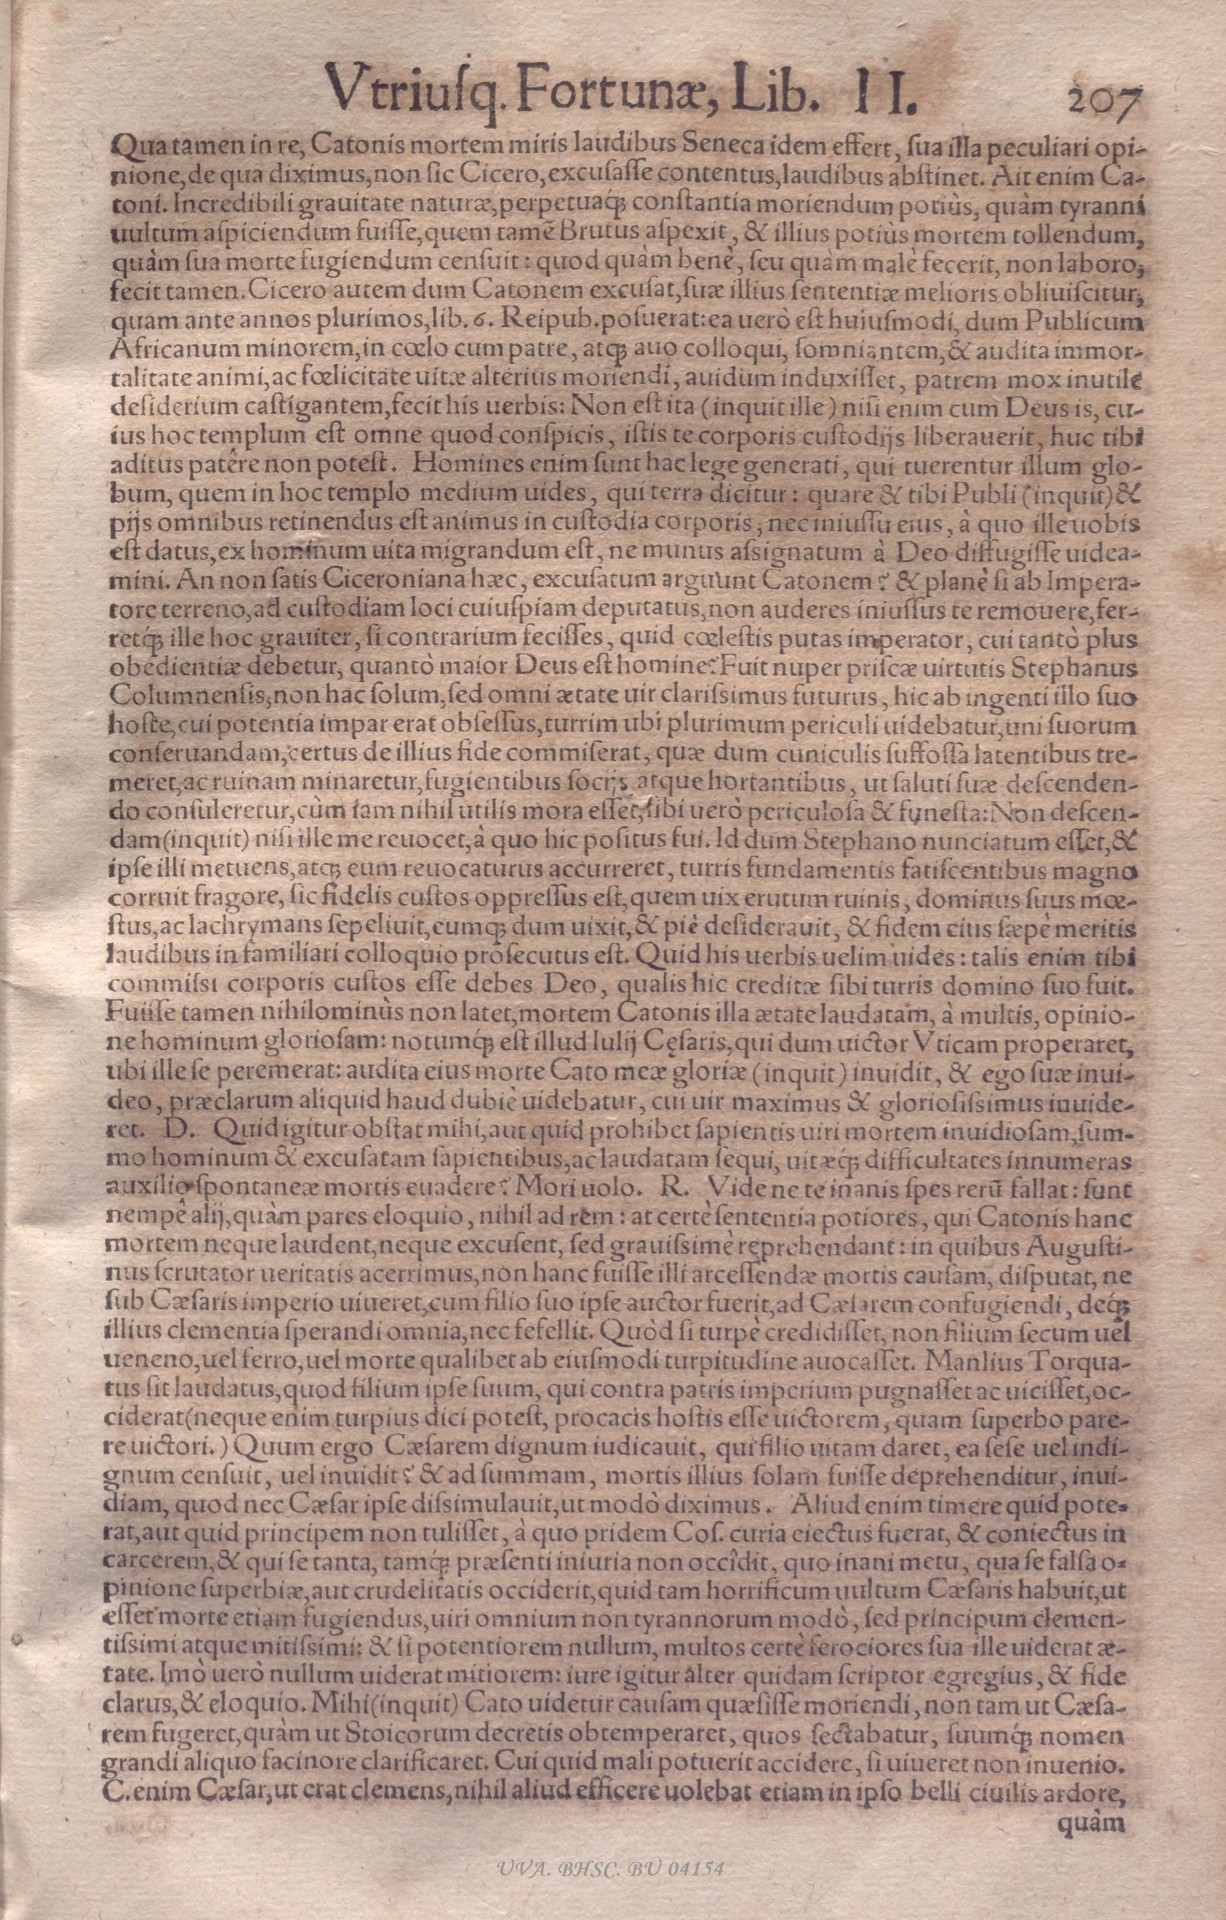 Vtriusq. Fortunæ, Lib. II. 207
Qua tamen in re, Catonis mortem miris laudibus Seneca idem effert, sua illa peculiari opi-
nione, de qua diximus, non sic Cicero, excusasse contentus, laudibus abstinet. Ait enim Ca-
toni. Incredibili grauitate naturæ, perpetuaq́; constantia moriendum potiùs, quàm tyranni
uultum aspiciendum fuisse, quem tamẽ Brutus aspexit, & illius potiùs mortem tollendum,
quàm sua morte fugiendum censuit: quod quàm benè, seu quàm malè fecerit, non laboro,
fecit tamen. Cicero autem dum Catonem excusat, suæ illius sententiæ melioris obliuiscitur,
quam ante annos plurimos, lib. 6. Reipub. posuerat: ea uerò est huiusmodi, dum Publicum
Africanum minorem, in cœlo cum patre, atq; auo colloqui, somniantem, & audita immor-
talitate animi, ac fœlicitate uitæ alterius moriendi, auidum induxisset, patrem mox inutile
desiderium castigantem, fecit his uerbis: Non est ita (inquit ille) nisi enim cum Deus is, cu-
ius hoc templum est omne quod conspicis, istis te corporis custodijs liberauerit, huc tibi
aditus patêre non potest. Homines enim sunt hac lege generati, qui tuerentur illum glo-
bum, quem in hoc templo medium uides, qui terra dicitur: quare & tibi Publi (inquit) &
pijs omnibus retinendus est animus in custodia corporis, nec iniussu eius, à quo ille uobis
est datus, ex hominum uita migrandum est, ne munus assignatum à Deo diffugisse uidea-
mini. An non satis Ciceroniana hæc, excusatum arguunt Catonem? & planè si ab Impera-
tore terreno, ad custodiam loci cuiuspiam deputatus, non auderes iniussus te remouere, fer-
retq́; ille hoc grauiter, si contrarium fecisses, quid cœlestis putas imperator, cui tantò plus
obedientiæ debetur, quantò maior Deus est homine? Fuit nuper priscæ uirtutis Stephanus
Columnensis, non hac solum, sed omni ætate uir clarissimus futurus, hic ab ingenti illo suo
hoste, cui potentia impar erat obsessus, turrim ubi plurimum periculi uidebatur, uni suorum
conseruandam, certus de illius fide commiserat, quæ dum cuniculis suffossa latentibus tre-
meret, ac ruinam minaretur, fugientibus socijs atque hortantibus, ut saluti suæ descenden-
do consuleretur, cùm iam nihil utilis mora esset, sibi uerò periculosa & funesta: Non descen-
dam (inquit) nisi ille me reuocet, à quo hic positus fui. Id dum Stephano nunciatum esset, &
ipse illi metuens, atq; eum reuocaturus accurreret, turris fundamentis fatiscentibus magno
corruit fragore, sic fidelis custos oppressus est, quem uix erutum ruinis, dominus suus mœ-
stus, ac lachrymans sepeliuit, eumq; dum uixit, & piè desiderauit, & fidem eius sæpè meritis
laudibus in familiari colloquio prosecutus est. Quid his uerbis uelim uides: talis enim tibi
commissi corporis custos esse debes Deo, qualis hic creditæ sibi turris domino suo fuit.
Fuisse tamen nihilominùs non latet, mortem Catonis illa ætate laudatam, à multis, opinio-
ne hominum gloriosam: notumq́; est illud Iulij Cęsaris, qui dum uictor Vticam properaret,
ubi ille se peremerat: audita eius morte Cato meæ gloriæ (inquit) inuidit, & ego suæ inui-
deo, præclarum aliquid haud dubiè uidebatur, cui uir maximus & gloriosissimus inuide-
ret. D. Quid igitur obstat mihi, aut quid prohibet sapientis uiri mortem inuidiosam, sum-
mo hominum & excusatam sapientibus, ac laudatam sequi, uitæq́; difficultates innumeras
auxilio spontaneæ mortis euadere? Mori uolo. R. Vide ne te inanis spes rerũ fallat: sunt
nempè alij, quàm pares eloquio, nihil ad rem: at certè sententia potiores, qui Catonis hanc
mortem neque laudent, neque excusent, sed grauissimè reprehendant: in quibus Augusti-
nus scrutator ueritatis acerrimus, non hanc fuisse illi arcessendæ mortis causam, disputat, ne
sub Cæsaris imperio uiueret, cum filio suo ipse auctor fuerit, ad Cæsarem confugiendi, deq́;
illius clementia sperandi omnia, nec fefellit. Quòd si turpè credidisset, non filium secum uel
ueneno, uel ferro, uel morte qualibet ab eiusmodi turpitudine auocasset. Manlius Torqua-
tus sit laudatus, quod filium ipse suum, qui contra patris imperium pugnasset ac uicisset, oc-
ciderat (neque enim turpius dici potest, procacis hostis esse uictorem, quam superbo pare-
re uictori.) Quum ergo Cæsarem dignum iudicauit, qui filio uitam daret, ea sese uel indi-
gnum censuit, uel inuidit? & ad summam, mortis illius solam fuisse deprehenditur, inui-
diam, quod nec Cæsar ipse dissimulauit, ut modò diximus. Aliud enim timere quid pote-
rat, aut quid principem non tulisset, à quo pridem Cos. curia eiectus fuerat, & coniectus in
carcerem, & qui se tanta, tamq́; præsenti iniuria non occîdit, quo inani metu, qua se falsa o-
pinione superbiæ, aut crudelitatis occiderit, quid tam horrificum uultum Cæsaris habuit, ut
esset morte etiam fugiendus, uiri omnium non tyrannorum modò, sed principum clemen-
tissimi atque mitissimi: & si potentiorem nullum, multos certè ferociores sua ille uiderat æ-
tate. Imò uerò nullum uiderat mitiorem: iure igitur alter quidam scriptor egregius, & fide
clarus, & eloquio. Mihi (inquit) Cato uidetur causam quæsisse moriendi, non tam ut Cæsa-
rem fugeret, quàm ut Stoicorum decretis obtemperaret, quos sectabatur, suumq́; nomen
grandi aliquo facinore clarificaret. Cui quid mali potuerit accidere, si uiueret non inuenio.
C. enim Cæsar, ut erat clemens, nihil aliud efficere uolebat etiam in ipso belli ciuilis ardore,
quàm
UVA. BHSC. BU 04154